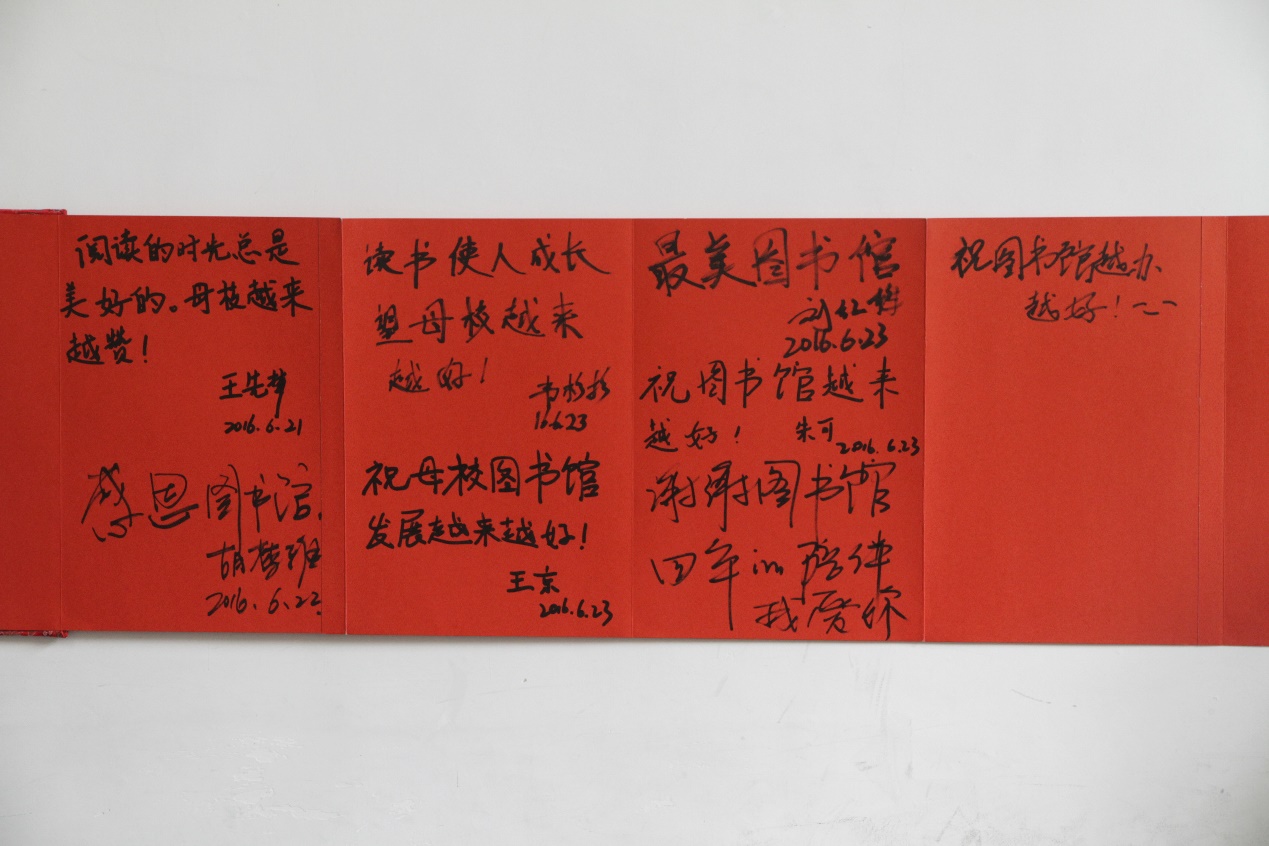 阅读的时光总是
美好的。母校越来
越赞！
王先梦
2016.6.21
感恩图书馆.
胡梦雅
2016.6.22
读书使人成长
望母校越来
越好！
韦杉杉
16.6.23
祝母校图书馆
发展越来越好！
王京
2016.6.23
最美图书馆
刘红
2016.6.23
祝图书馆越来
越好！ 朱可 2016.6.23
谢谢图书馆
四年in陪伴
我爱你
祝图书馆越办
越好！